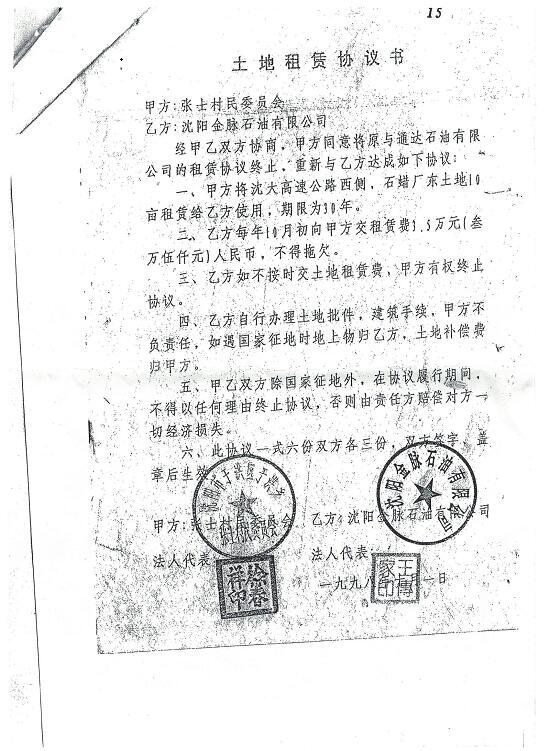 15
土地租赁协议书
甲方:张士村民委员会
乙方:沈阳金脉石油有限公司
经甲乙双方协商，甲方同意将原与通达石油有限
公司的租赁协议终止，重新与乙方达成如下协议:
一、甲方将沈大高速公路西侧，石蜡厂东土地10
亩租赁给乙方使用，期限为30年。
二、乙方每年10月初向甲方交租赁费3.5万元(叁
万伍仟元)人民币，不得拖欠。
三、乙方如不按时交土地租赁费，甲方有权终止
协议。
四、乙方自行办理土地批件，建筑手续，甲方不
负责任，如遇国家征地时地上物归乙方，土地补偿费
归甲方。
五、甲乙双方除国家征地外，在协议履行期间，
不得以任何理由终止协议，否则由责任方赔偿对方一
切经济损失。
六、此协议一式六份双方各三份，双方签字，盖
章后生效
甲方:张士村民委员会 乙方:沈阳金脉石油有限公司
法人代表: 法人代表:
一九九八年 月一日
沈阳金脉石油有限公司
王傅家印